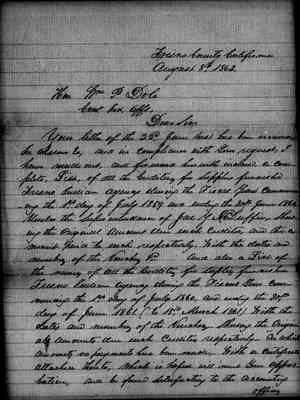 Fresno County California
August 8th 1862.
Hon Wm P Dole
Com Ind Affs.
Dear Sir
Your letter of the 23d June last has been
and in compliance with your request, I
have and herewith make a com-
plete List, of all the Creditors for supplies furnished
Fresno Indian Agency during the Fiscal Year Comm-
the 1st day of July 1859 and ending the 30th June 1860
Under the Superintendency of Jas Y McDuffie, show-
ing the Original Amount due such Creditors, and the a-
mount due to each respectively. With the dates and
number of the Voucher And also a List of
the names of all the Creditors for supplies furnished
Fresno Indian Agency during the Fiscal Year com-
mencing the 1st day of July 1860, and ending the 30th
day of June 1861. (to 15th March 1861) With the
dates and number of the Voucher Showing the Origin-
al Amounts due such Creditors respectively. On which
amounts no payment has been made. With a Certificate
attached thereto, which I hope will meet Your appro-
bation, and be found satisfactory to the Accounting
officers